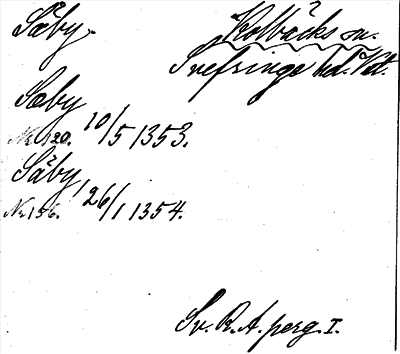 Säby. Kolbäcks sn.
Snefringe hd. Vstm.
Sæby
Nr. 120. 10/5 1353.
Säby,
Nr. 156. 26/1 1354.
Sv. R. A. perg. I.